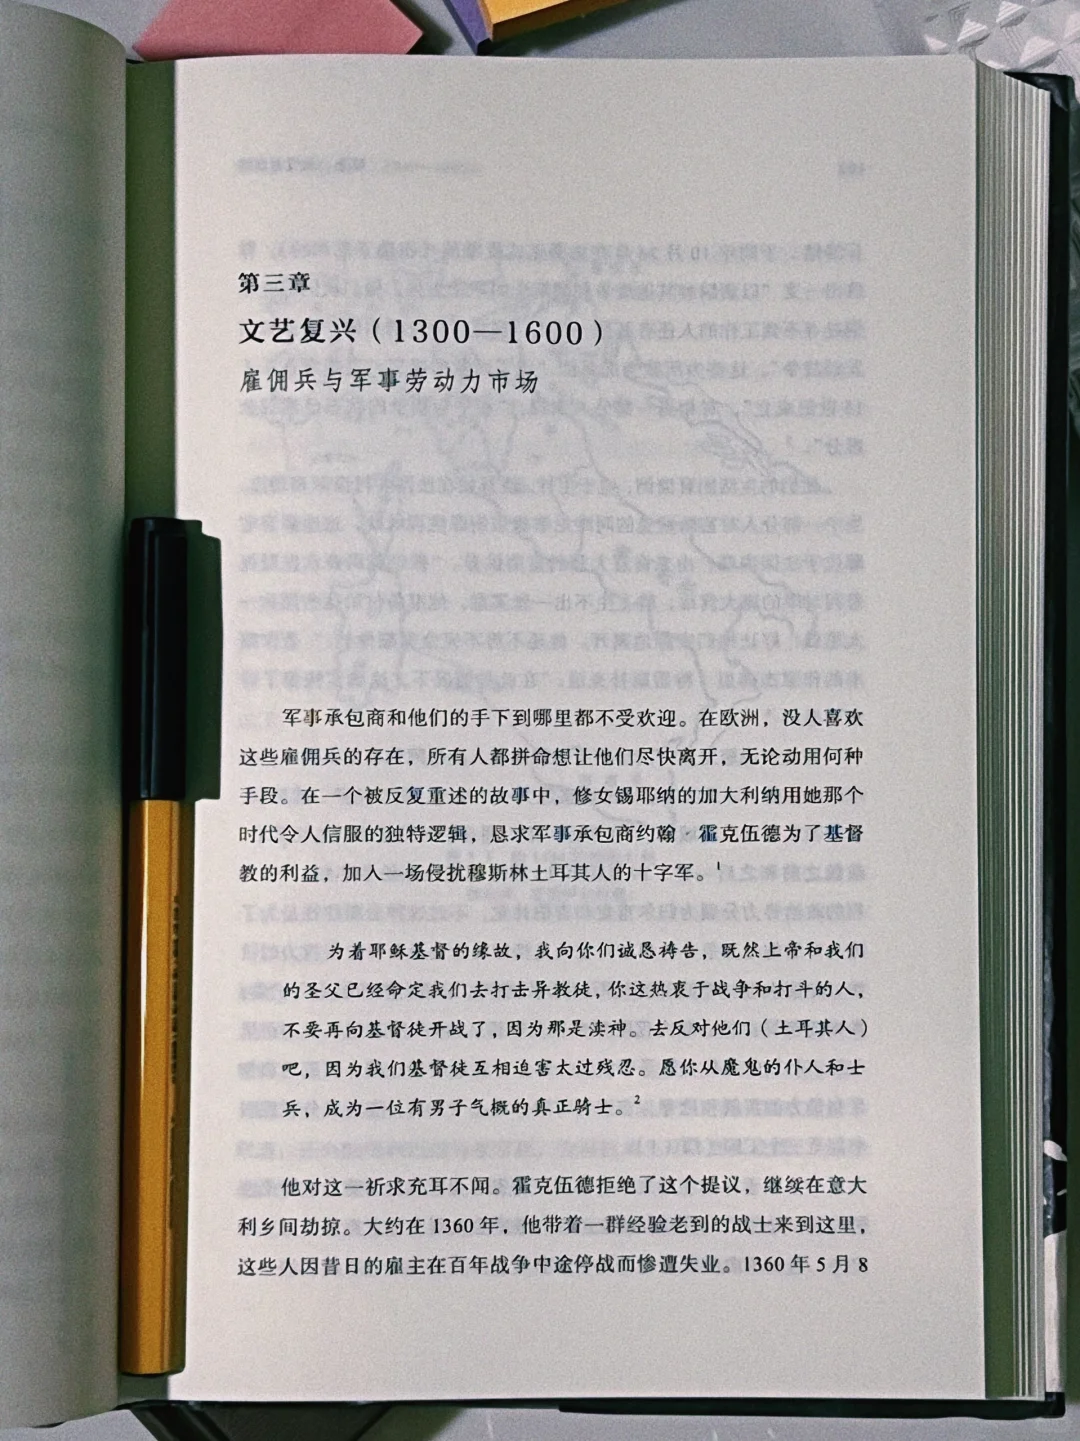 第三章
文艺复兴（1300—1600）
雇佣兵与军事劳动力市场
军事承包商和他们的手下到哪里都不受欢迎。在欧洲，没人喜欢
这些雇佣兵的存在，所有人都拼命想让他们尽快离开，无论动用何种
手段。在一个被反复重述的故事中，修女锡耶纳的加大利纳用她那个
时代令人信服的独特逻辑，恳求军事承包商约翰·霍克伍德为了基督
教的利益，加入一场侵扰穆斯林土耳其人的十字军。1
为着耶稣基督的缘故，我向你们诚恳祷告，既然上帝和我们
的圣父已经命定我们去打击异教徒，你这热衷于战争和打斗的人，
不要再向基督徒开战了，因为那是渎神。去反对他们（土耳其人）
吧，因为我们基督徒互相迫害太过残忍。愿你从魔鬼的仆人和士
兵，成为一位有男子气概的真正骑士。2
他对这一祈求充耳不闻。霍克伍德拒绝了这个提议，继续在意大
利乡间劫掠。大约在 1360 年，他带着一群经验老到的战士来到这里，
这些人因昔日的雇主在百年战争中途停战而惨遭失业。1360 年 5 月 8